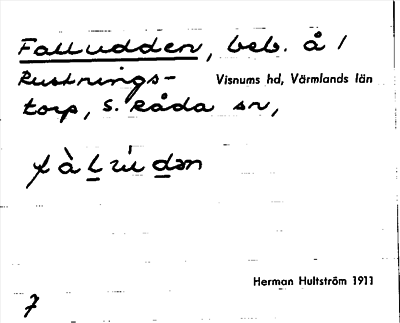 Falludden, beb. å /
Rustnings- Visnums hd, Värmlands län
torp, S. Råda sn,
Herman Hultström 1911
7